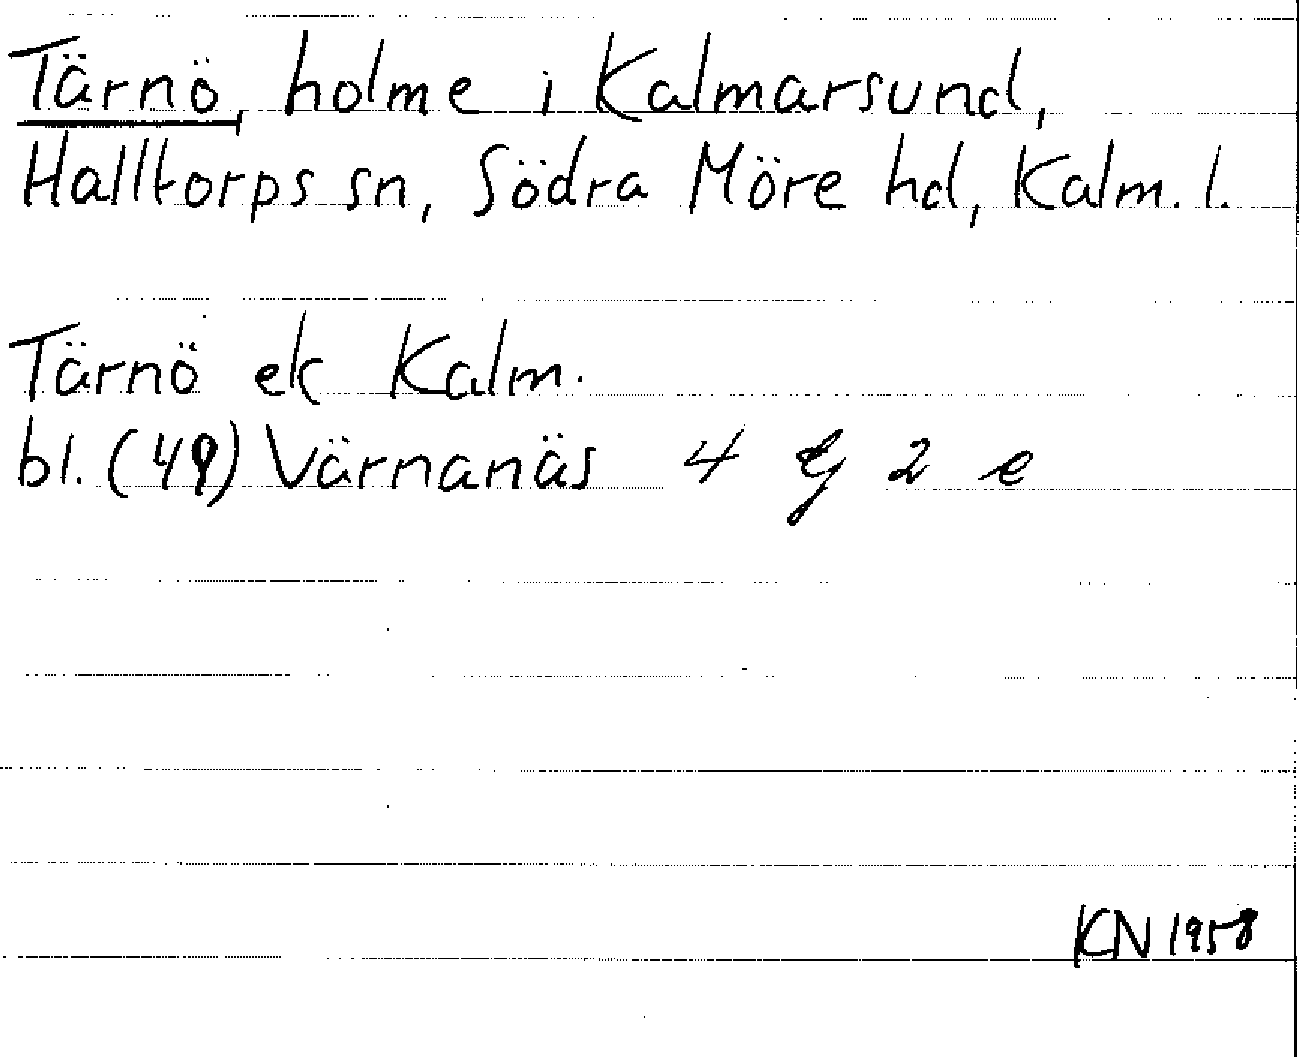 Tärnö, holme i Kalmarsund,
Halltorps sn, Södra Möre hd, Kalm. l.
Tärnö ek Kalm.
bl. (49) Värnanäs 4 G 2 e
KN 1958